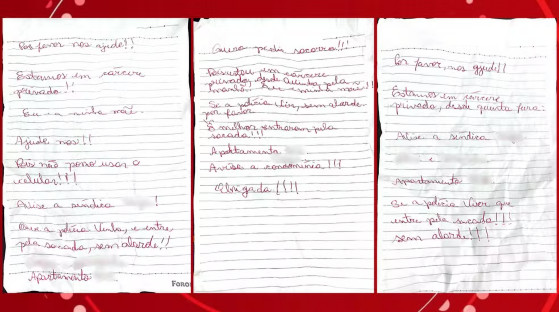 Por favor nos ajude!!
Estamos em cárcere
privado!!
Eu e a minha mãe.
Ajude nos!!
Pois não posso usar o
celular!!!
Avise a síndica !
Que a polícia Venha, e entre
pela sacada, sem alarde!!
Apartamento
Fonor
peço socorro!!!
em cárcere
privado, desde Quinta, pelo
marido. Eu e minha mãe!!
Se a polícia Vier, sem alarde
por favor
É melhor entrarem pela
sacada!!!
Apartamento
Avise a condomínio!!!
Obrigada!!!!
Por favor, nos ajude!!
Estamos em cárcere
privado, desde quinta fera.
Avise a síndica
e
Apartamento
Se a polícia Vier que
entre pela sacada!!!
sem alarde!!!